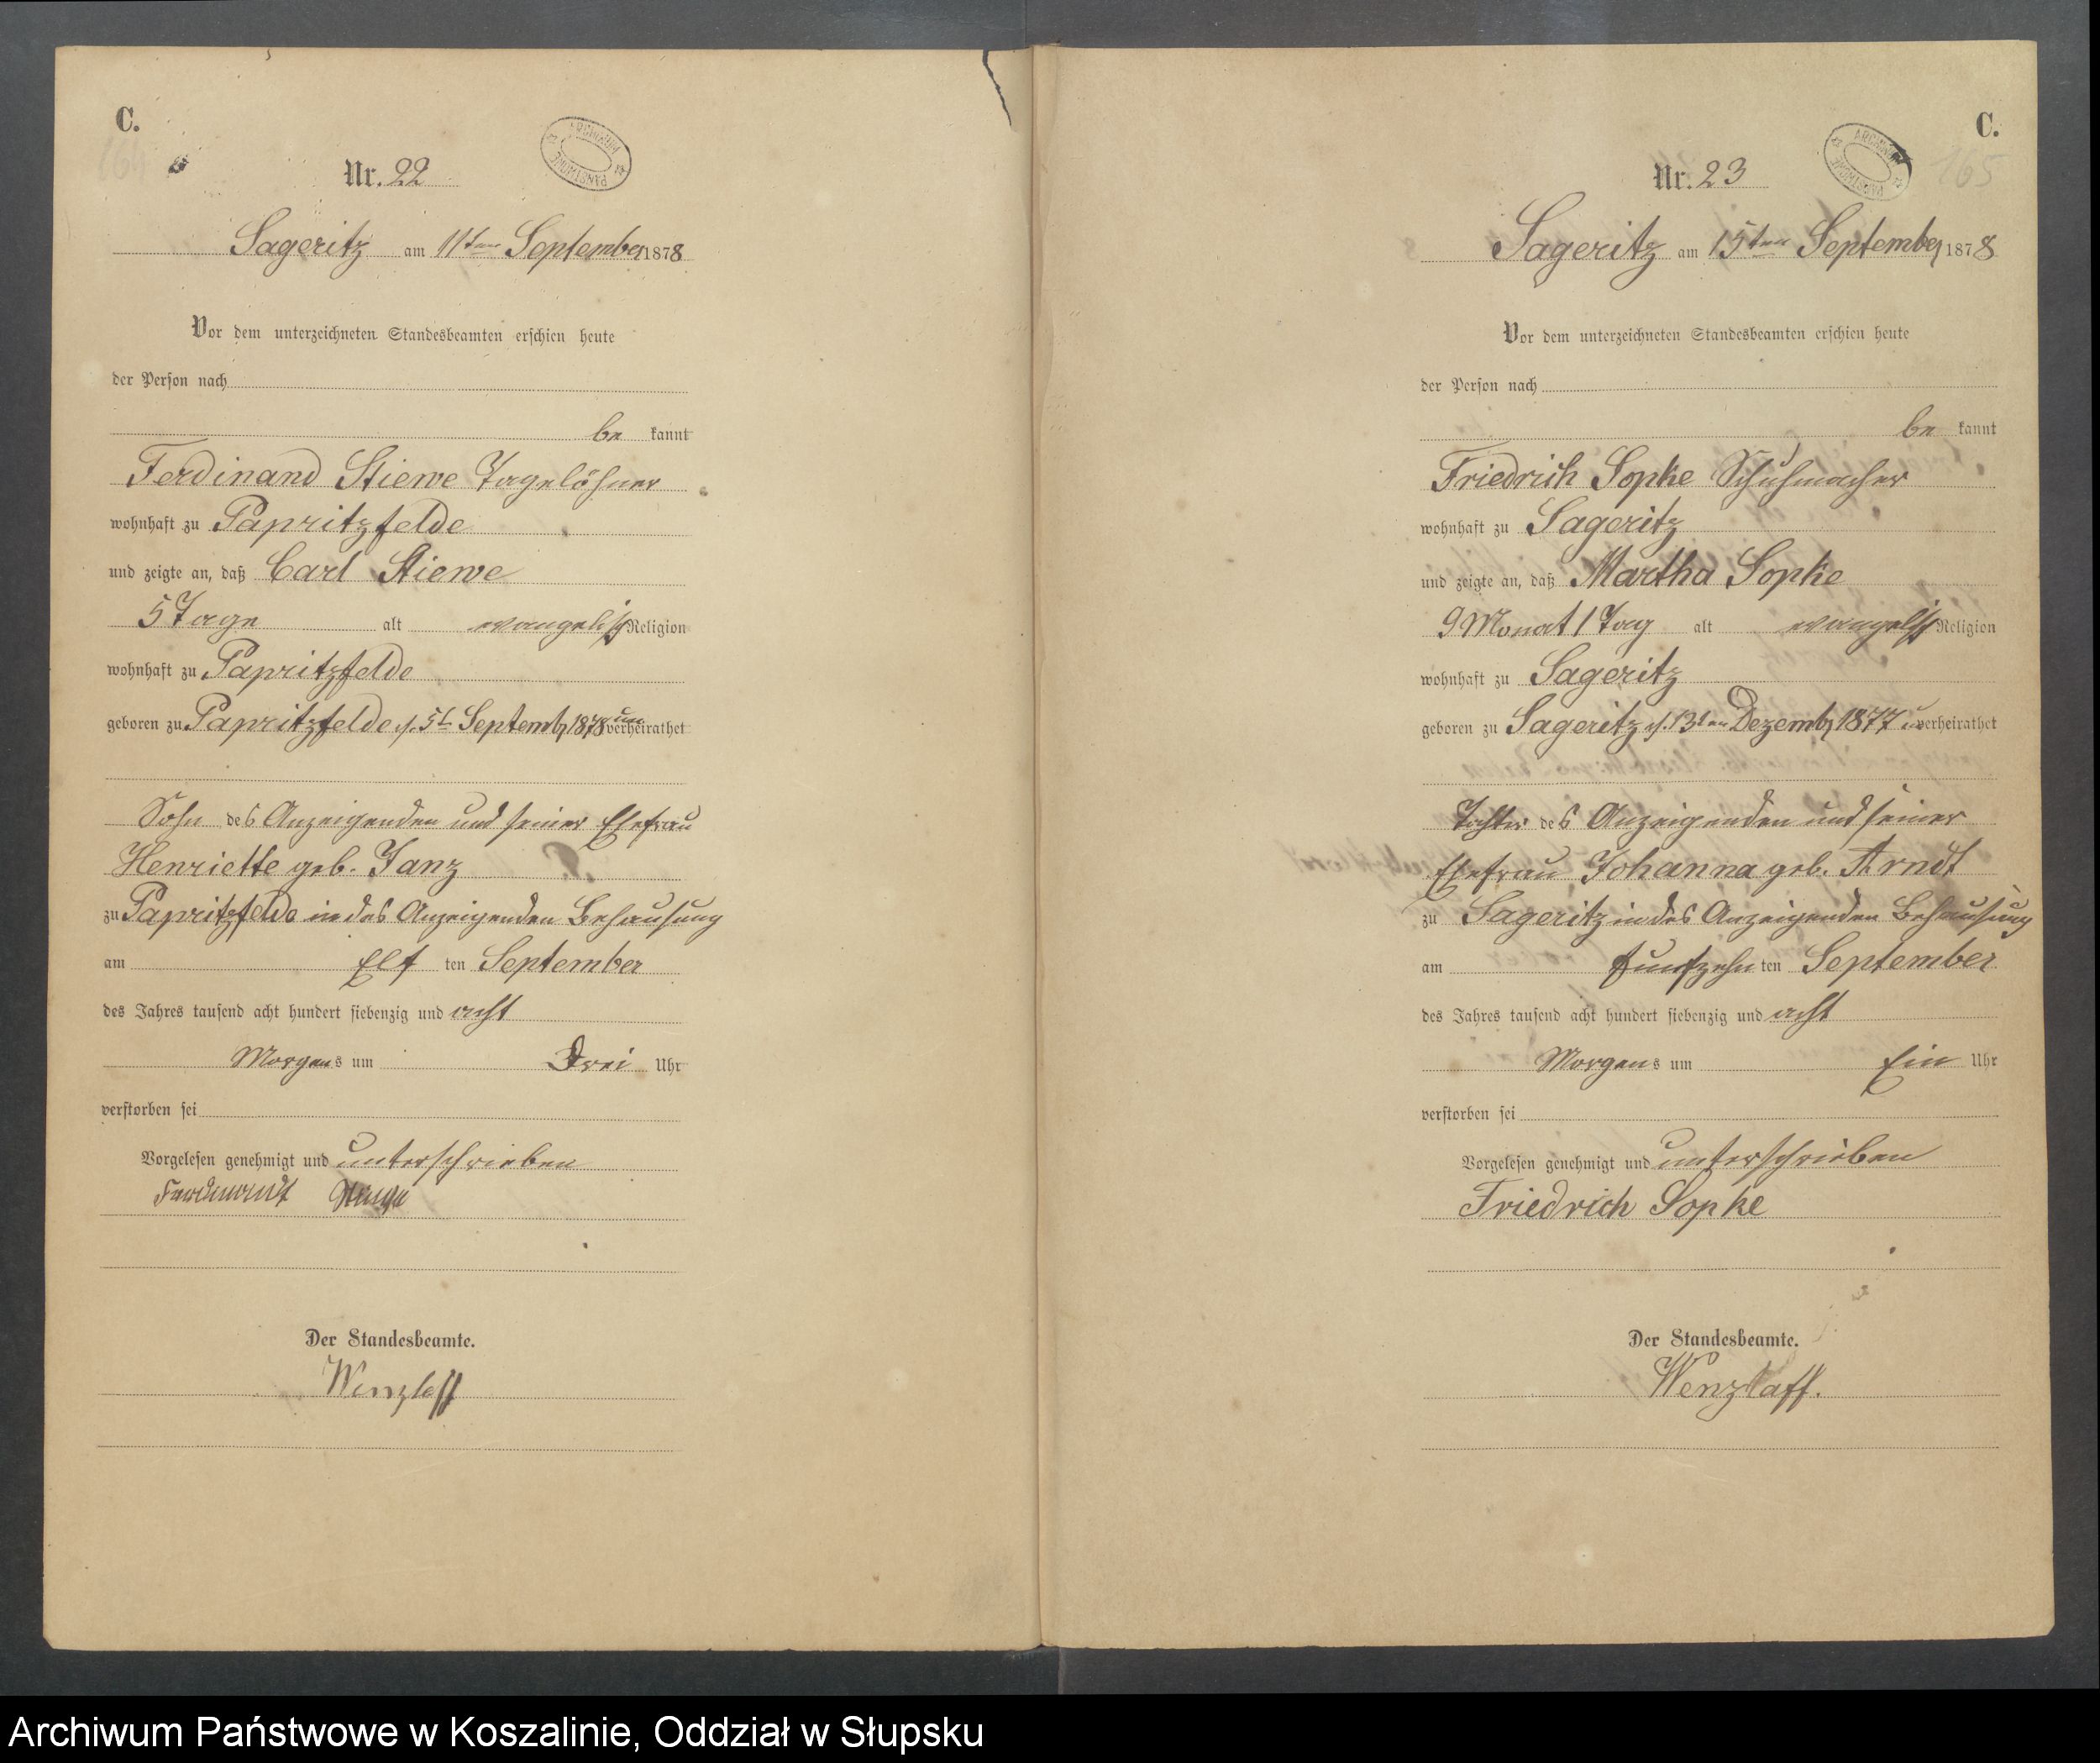 C.
164
Nr. 22
ARCHIWUM PAŃSTWOWE
Sageritz am 11ten September 1878
Vor dem unterzeichneten Standesbeamten erschien heute
der Person nach
be kannt
Ferdinand Stiewe Tagelöhner
wohnhaft zu Papritzfelde
und zeigte an, daß Carl Stiewe
5 Tage alt evangelisch Religion
wohnhaft zu Papritzfelde
geboren zu Papritzfelde d. 5t Septembr 1878 unverheirathet
Sohn des Anzeigenden und seiner Ehefrau
Henriette geb. Janz
zu Papritzfelde in des Anzeigenden Behausung
am Elf ten September
des Jahres tausend acht hundert siebenzig und acht
Morgens um Drei Uhr
verstorben sei
Vorgelesen genehmigt und unterschrieben
Der Standesbeamte.
Wenzlaff
C.
165
Nr. 23
ARCHIWUM PAŃSTWOWE
Sageritz am 15ten September 1878
Vor dem unterzeichneten Standesbeamten erschien heute
der Person nach
be kannt
Friedrich Sopke Schuhmacher
wohnhaft zu Sageritz
und zeigte an, daß Martha Sopke
9 Monat 1 Tag alt evangelisch Religion
wohnhaft zu Sageritz
geboren zu Sageritz d. 13ten Dezembr 1877 unverheirathet
Tochter des Anzeigenden und seiner
Ehefrau Johanna geb. Arndt
zu Sageritz in des Anzeigenden Behausung
am funfzehn ten September
des Jahres tausend acht hundert siebenzig und acht
Morgens um Ein Uhr
verstorben sei
Vorgelesen genehmigt und unterschrieben
Friedrich Sopke
Der Standesbeamte.
Wenzlaff.
Archiwum Państwowe w Koszalinie, Oddział w Słupsku